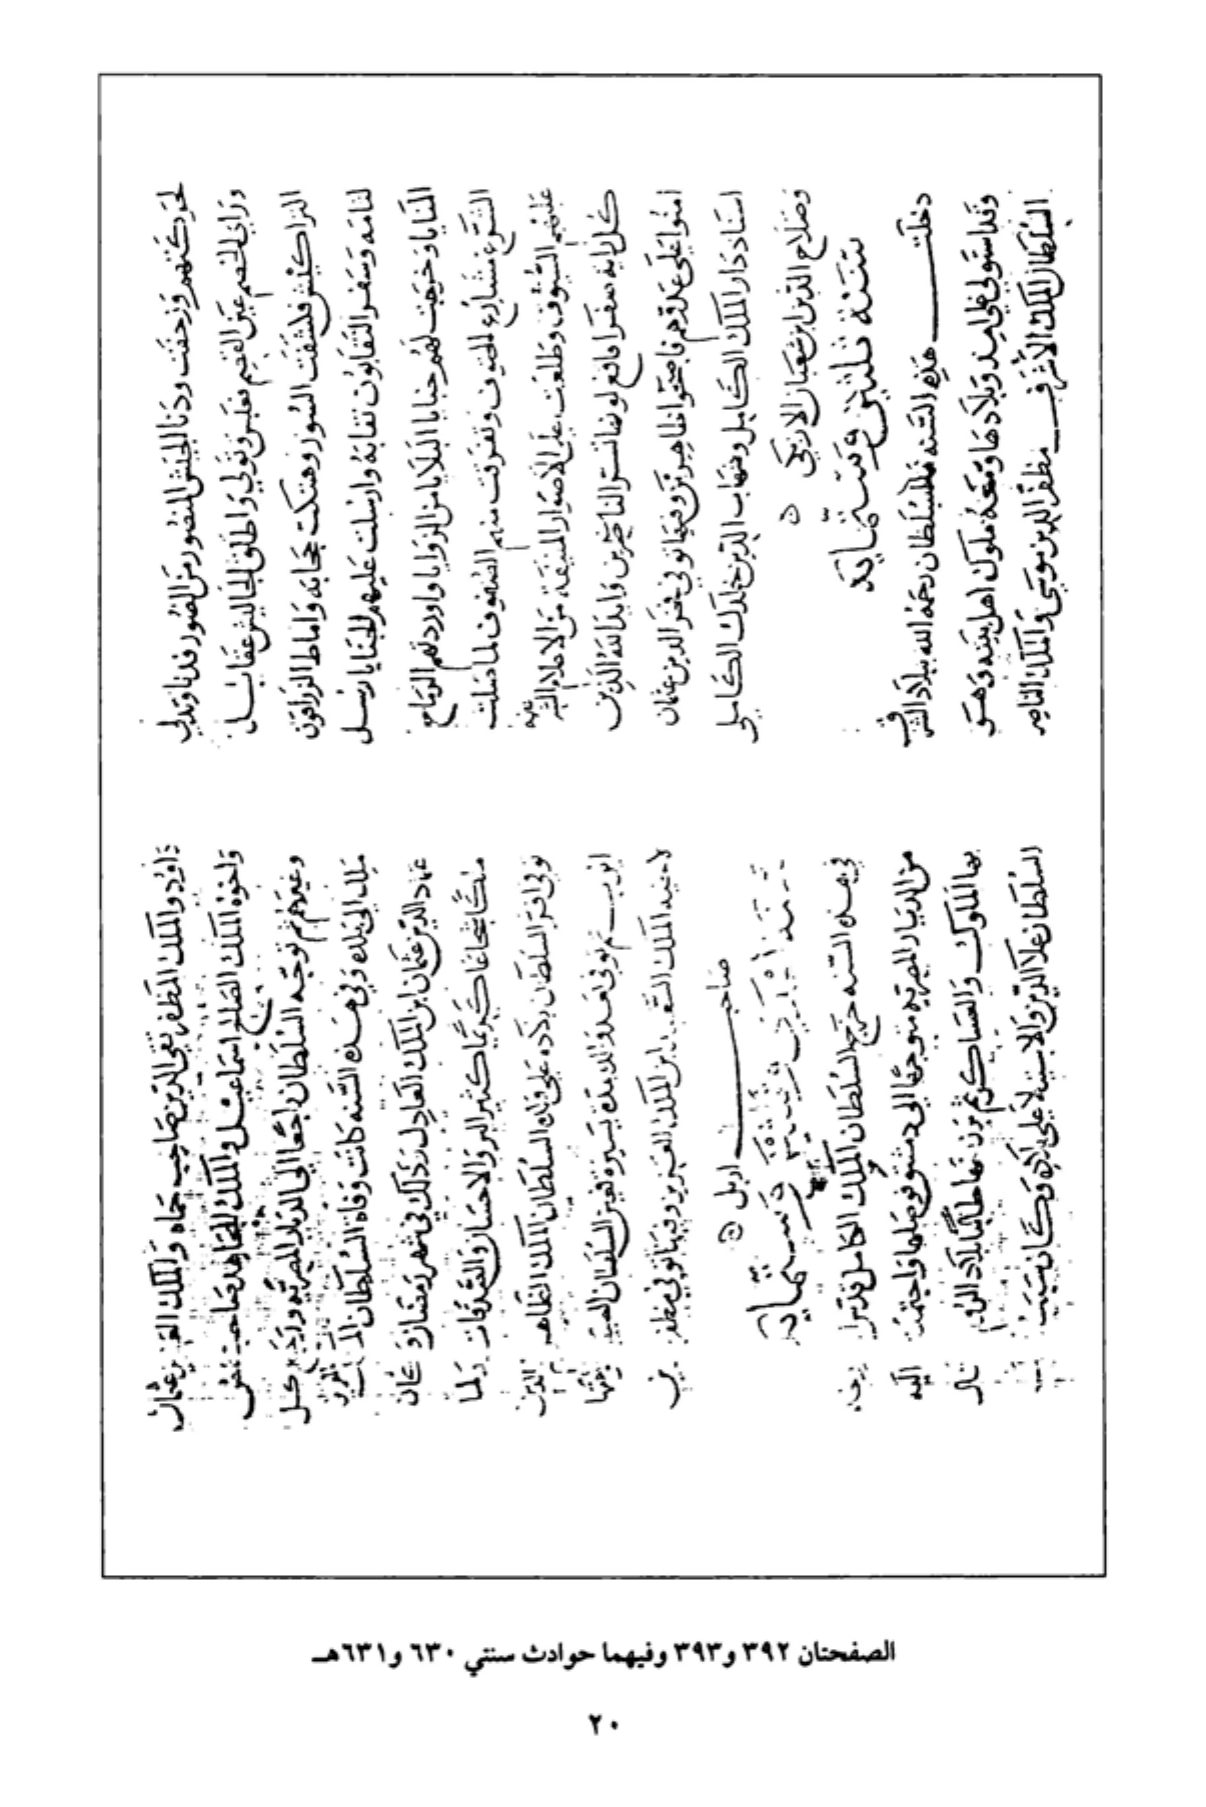 لحركتهم وزحفت ودنا الجيش المنصور من السور فدنا وتدلى
وراى الخصم عين القصم فعبس وتولى واطلق الجاليش
التراكيش السور وهتكت حجابه واماط الزراقون
لثامه وسفر النقابون نقابه وارسلت عليهم الحنايا رسل
المنايا وخرجت لهم خبايا البلايا من الزوايا واوردتهم الرماح
الشرع مشارع الحتوف وتفرقت منهم الصفوف لما سلت
عليهم السيوف وطلعت على الاسوار المنيعة من الاعلام
كل راية صفرا فاقع لونها تسر الناظرين وايد الله الذين
امنوا على عدوهم فاصبحوا ظاهرين وفيها توفي فخر الدين عثمان
استاد دار الملك الكامل وشهاب الدين خلدك الكاملي
وصلاح الدين بن شعبان الاربلي
سنة ثلثين وستمايه
دخلت هذه السنه والسلطان رحمه الله ببلاد الشرق
وقد استولى على امد وبلادها ومعه ملوك اهل بيته وهم
السلطان الملك الاشرف مظفر الدين موسى والملك الناصر
داود والملك المظفر تقي الدين صاحب حماه والملك العزيز عثمان
واخوه الملك الصالح اسماعيل والملك المجاهد صاحب حمص
وغيرهم ثم توجه السلطان راجعا الى الديار المصريه ورجع كل
ملك الى بلده وفي هذه السنه كانت وفاة السلطان الملك العزيز
عماد الدين عثمان ابن الملك العادل وذلك في شهر رمضان وكان
ملكا شجاعا كريما كثير البر والاحسان والصدقات ولما
توفي اقر السلطان بلاده على ولده السلطان الملك الظاهر
ثم توفي بعد والده بمدة يسيرة
لاخيه الملك السعيد ابن الملك العزيز وفيها توفي مظفر الدين
صاحب اربل
سنة احدى وثلثين وستمايه
في هذه السنه خرج السلطان الملك الكامل
من الديار المصريه متوجها الى دمشق فوصلها واجتمعت اليه
بها الملوك والعساكر ثم برز منها طالبا بلاد الروم
السلطان علا الدين والاستيلا على بلاده وكان سبب
الصفحتان ٣٩٢ و٣٩٣ وفيهما حوادث سنتي ٦٣٠ و٦٣١هـ
٢٠